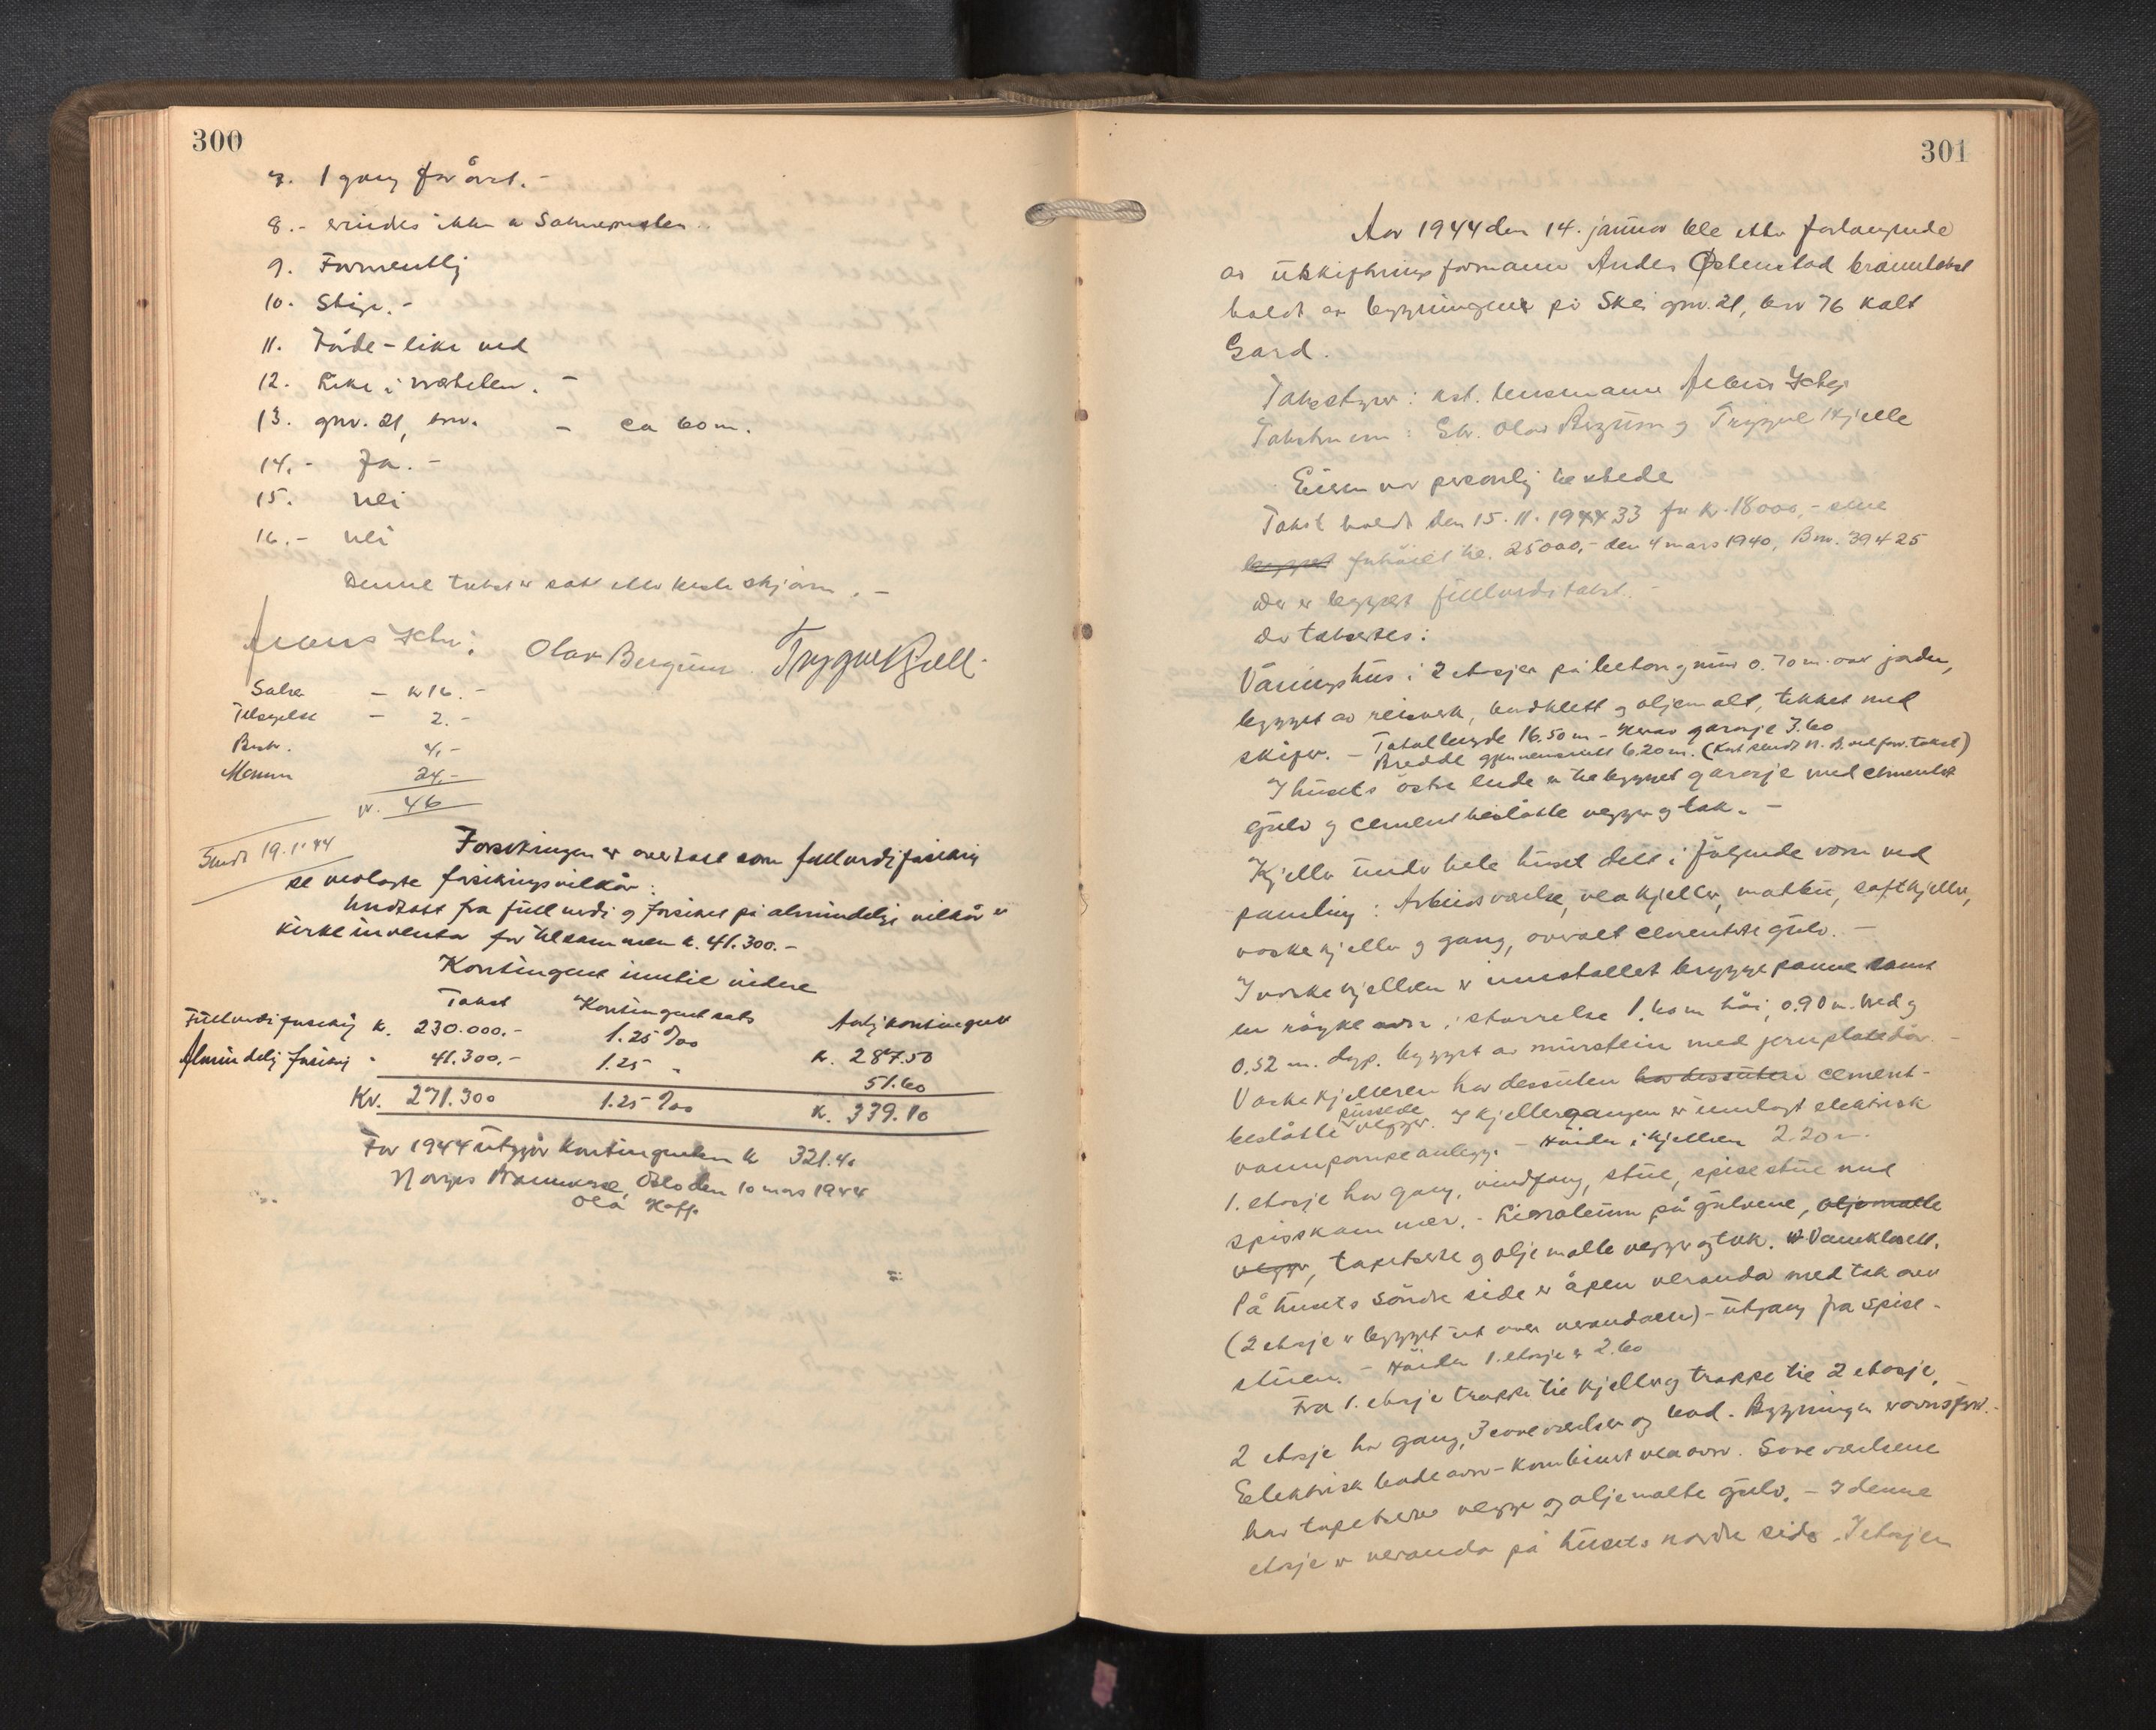 300
7. 1 gang for året. -
8. -
9. Formentlig
10. Stige. -
11. ved
12. Like i nærheten. -
13. gnr. 21, bnr. - ca 60 m.
14. - Ja. -
15. Nei
16. - Nei
Denne takst er satt etter beste skjønn. -
Olav Bergum Trygve Kjelle
Salær - kr 16. -
- 2. -
4, -
24, -
kr. 46
Sendt 19.1.44
Forsikringen er overtatt som fullverdiforsikring
se vedlagte forsikringsvilkår.
Undtatt fra fullverdi og forsikret på almindelige vilkår er
kirkeinventar for tilsammen kr. 41.300. -
Kontingent inntil videre
Takst Kontingentsats Årlig kontingent
Fullverdiforsikring kr. 230.000. - 1.25 ‰ kr. 287.50
Almindelig forsikring " 41.300, - 1.25 " 51.60
Kr. 271.300 1.25 ‰ kr. 339.10
For 1944 utgjør kontingenten kr 321.40
Norges Brannkasse, Oslo den 10 mars 1944
301
Aar 1944 den 14. januar ble etter forlangende
av utskiftningsformann Anders Østenstad branntakst
holdt av bygningene på Skei gnr. 21, bnr 76 kalt
Gard.
Takstyrer: kst. lensmann
Takstmenn: Olav Bergum og Trygve Kjelle
Eieren var personlig tilstede
Takst holdt den 15. 11. 1944 33 for kr. 18000, -
bygget forhøiet til 25000, - den 4 mars 1940, Bnr. 39425
Der er bygget fullverditakst. -
Da takseres:
Våningshus i 2 etasjer på betongmur 0.70 m. over jorden,
bygget av reisverk, bordklett og oljemalt, tekket med
skifer. - Total lengde 16.50 m - Herav garasje 3.60
Bredde gjennemsnitt 6.20 m. (Kart sendt N. B. ved forr. takst)
I husets østre ende er tilbygget garasje med cementert
gulv og cementbeslåtte vegger og tak. -
Kjeller under hele huset delt i følgende rom ved
panling: Arbeidsværelse, vedkjeller, matbu, saftkjeller,
vaskekjeller og gang, overalt cementerte gulv. -
I vaskekjelleren er innstallert bryggepanne samt
en røykeovn i størrelse 1.60 m høi, 0.90 m. bred og
0.52 m. dyp. bygget av murstein med jernplatedør. -
Vaskekjelleren har dessuten har dessuten cement-
beslåtte pussede vegger. I kjellergangen er innlagt elektrisk
vannpumpeanlegg. - Høiden i kjelleren 2.20 m.
1. etasje har gang, vindfang, stue, spisestue med
spisskammer. - Linoleum på gulvene, oljemalte
vegger, tapetserte og oljemalte vegger og tak. Vannklosett.
På husets søndre side er åpen veranda med tak over
(2 etasje er bygget ut over verandaen) - utgang fra spise-
stuen. - Høiden 1. etasje er 2.60
Fra 1. etasje trappe til kjeller og trappe til 2 etasje,
2 etasje har gang, 3 soveværelser og bad. Bygningen er ovnsfyrt. -
Elektrisk badeovn - kombinert vedovn. Soveværelsene
har tapetserte vegger og oljemalte gulv. - I denne
etasje er veranda på husets nordre side. I etasjen